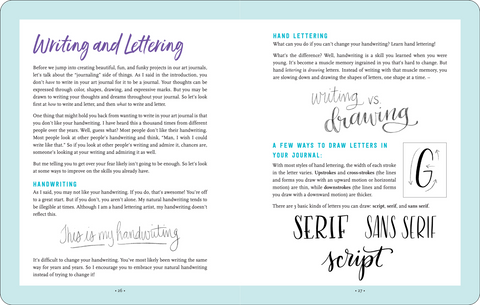 Writing and Lettering
Before we jump into creating beautiful, fun, and funky projects in our art journals,
let's talk about the "journaling" side of things. As I said in the introduction, you
don't have to write in your art journal for it to be a journal. Your thoughts can be
expressed through color, shapes, drawing, and expressive marks. But you may be
drawn to writing your thoughts and dreams throughout your journal. So let's look
first at how to write and letter, and then what to write and letter.
One thing that might hold you back from wanting to write in your art journal is that
you don't like your handwriting. I have heard this a thousand times from different
people over the years. Well, guess what? Most people don't like their handwriting.
Most people look at other people's handwriting and think, "Man, I wish I could
write like that." So if you look at other people's writing and admire it, chances are,
someone's looking at your writing and admiring it as well.
But me telling you to get over your fear likely isn't going to be enough. So let's look
at some ways to improve on the skills you already have.
HANDWRITING
As I said, you may not like your handwriting. If you do, that's awesome! You're off
to a great start. But if you don't, you aren't alone. My natural handwriting tends to
be illegible at times. Although I am a hand lettering artist, my handwriting doesn't
reflect this.
This is my handwriting
It's difficult to change your handwriting. You've most likely been writing the same
way for years and years. So I encourage you to embrace your natural handwriting
instead of trying to change it!
• 26 •
HAND LETTERING
What can you do if you can't change your handwriting? Learn hand lettering!
What's the difference? Well, handwriting is a skill you learned when you were
young. It's become a muscle memory ingrained in you that's hard to change. But
hand lettering is drawing letters. Instead of writing with that muscle memory, you
are slowing down and drawing the shapes of letters, one shape at a time. –
writing vs.
drawing
A FEW WAYS TO DRAW LETTERS IN
YOUR JOURNAL:
With most styles of hand lettering, the width of each stroke
in the letter varies. Upstrokes and cross-strokes (the lines
and forms you draw with an upward motion or horizontal
motion) are thin, while downstrokes (the lines and forms
you draw with a downward motion) are thicker.
G
There are 3 basic kinds of letters you can draw: script, serif, and sans serif.
SERIF SANS SERIF
script
• 27 •